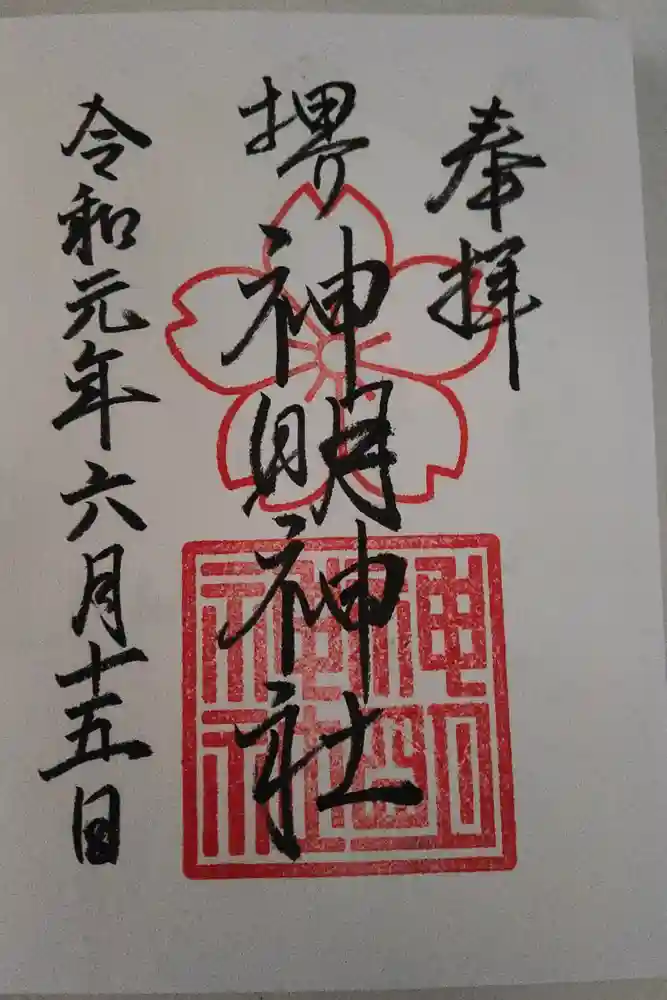 奉拝
堺神明神社
神明神社
令和元年六月十五日